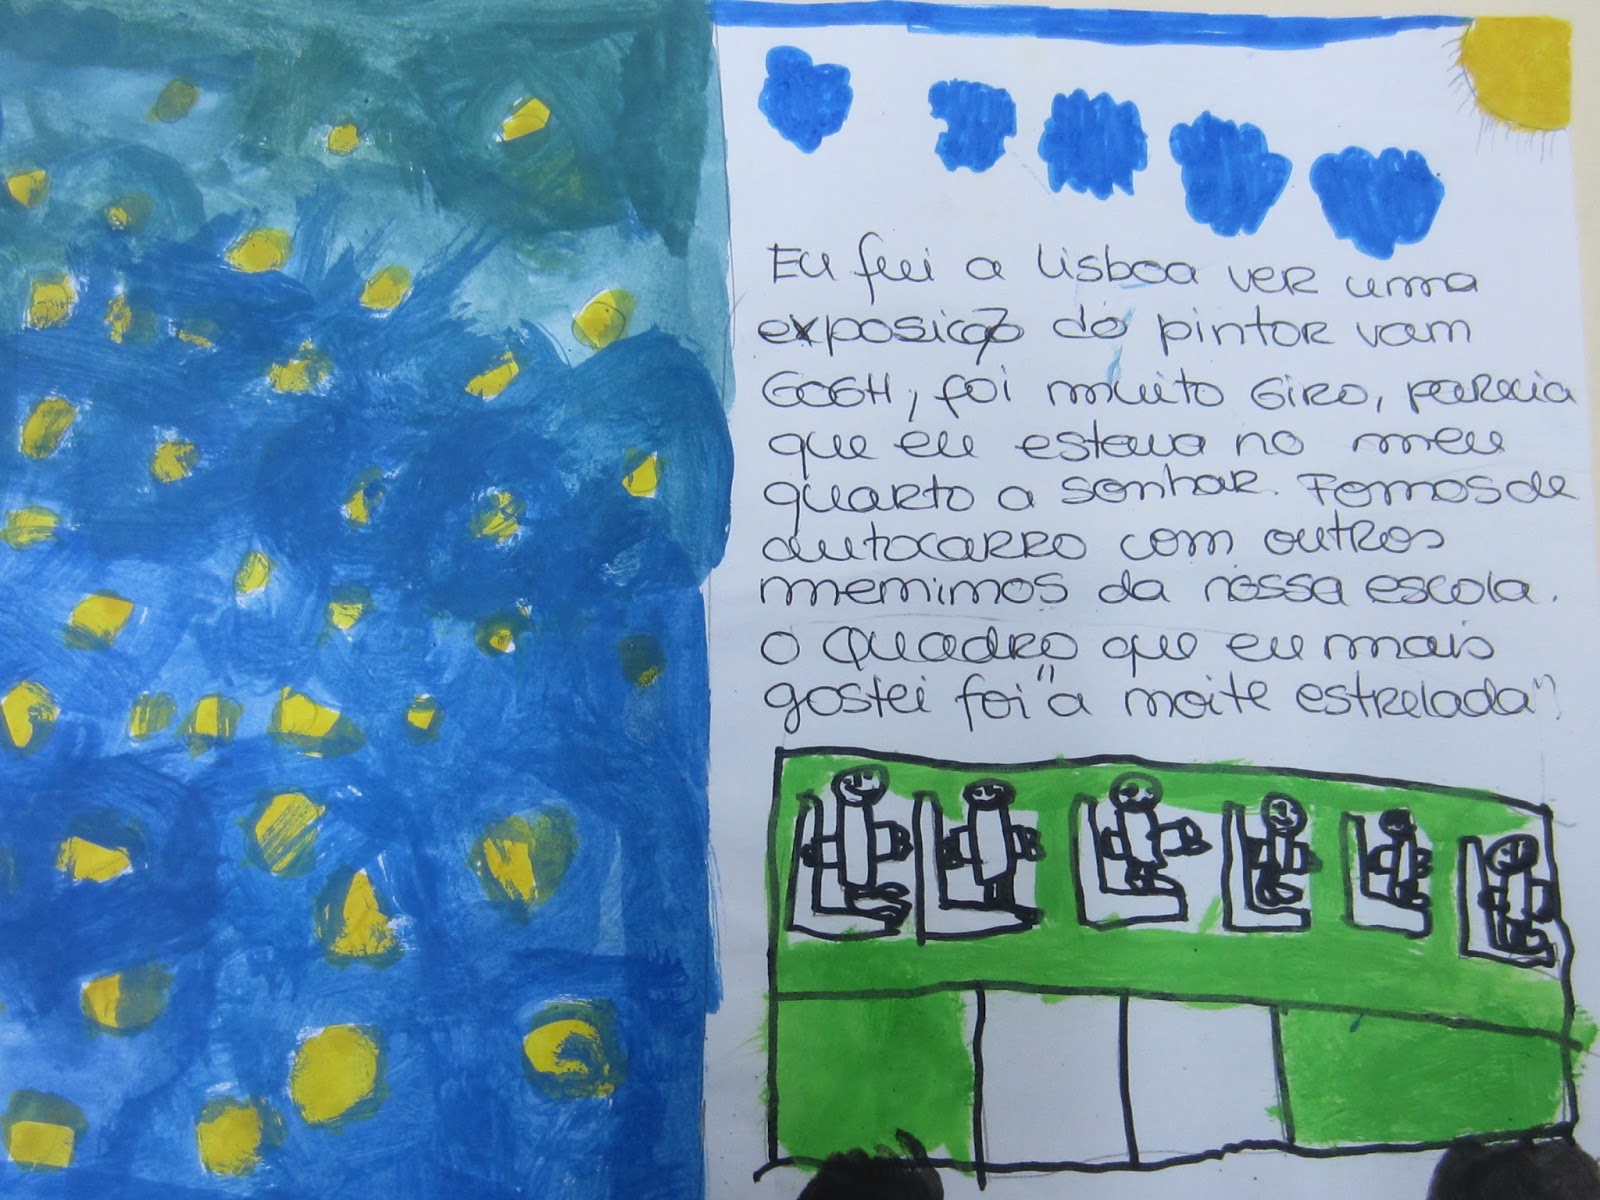 Eu fui a Lisboa ver uma
exposição do pintor vam
GOGH, foi muito Giro, parecia
que eu estava no meu
quarto a sonhar. Fomos de
autocarro com outros
memimos da nossa escola.
O Quadro que eu mais
gostei foi "a moite estrelada".